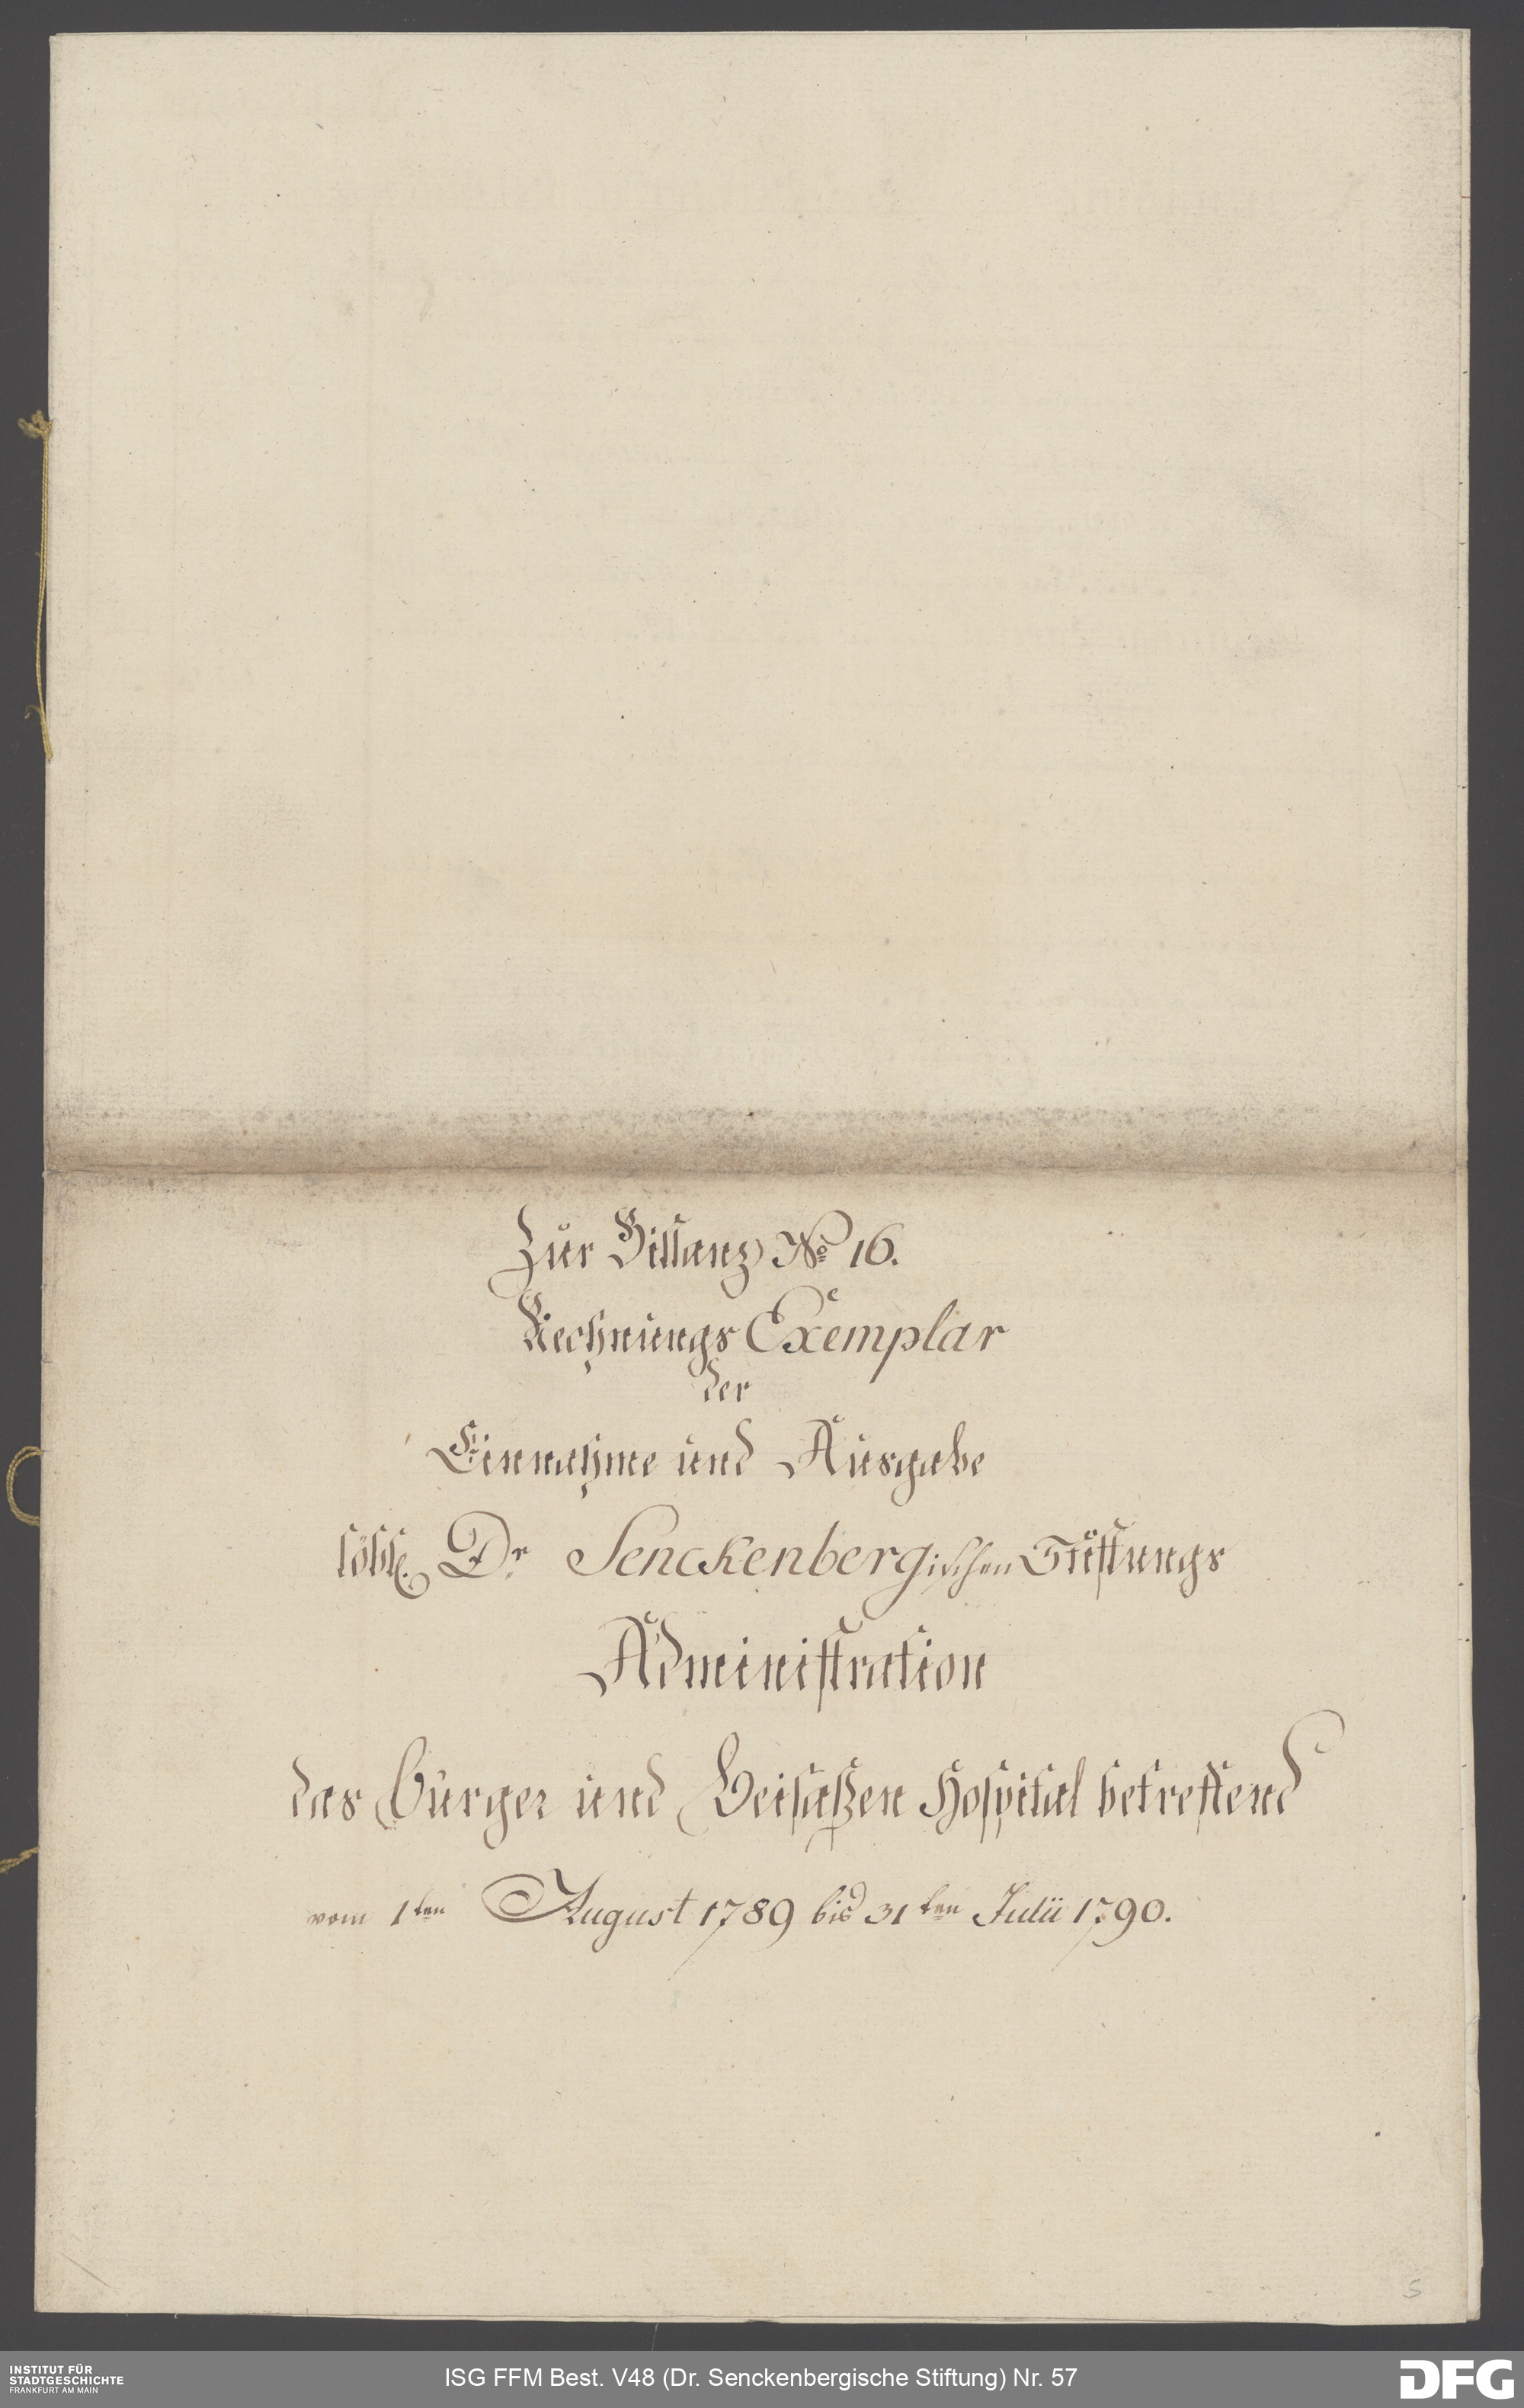 Zur Billanz No 16.
Rechnungs Exemplar
der
Einnahme und Ausgabe
löbl. Dr. Senckenbergischen Stiftungs
Administration
das Bürger und Beisaßen Hospital betreffend
vom 1ten August 1789 bis 31ten Julii 1790.
5
INSTITUT FÜR
STADTGESCHICHTE
FRANKFURT AM MAIN
ISG FFM Best. V48 (Dr. Senckenbergische Stiftung) Nr. 57
DFG